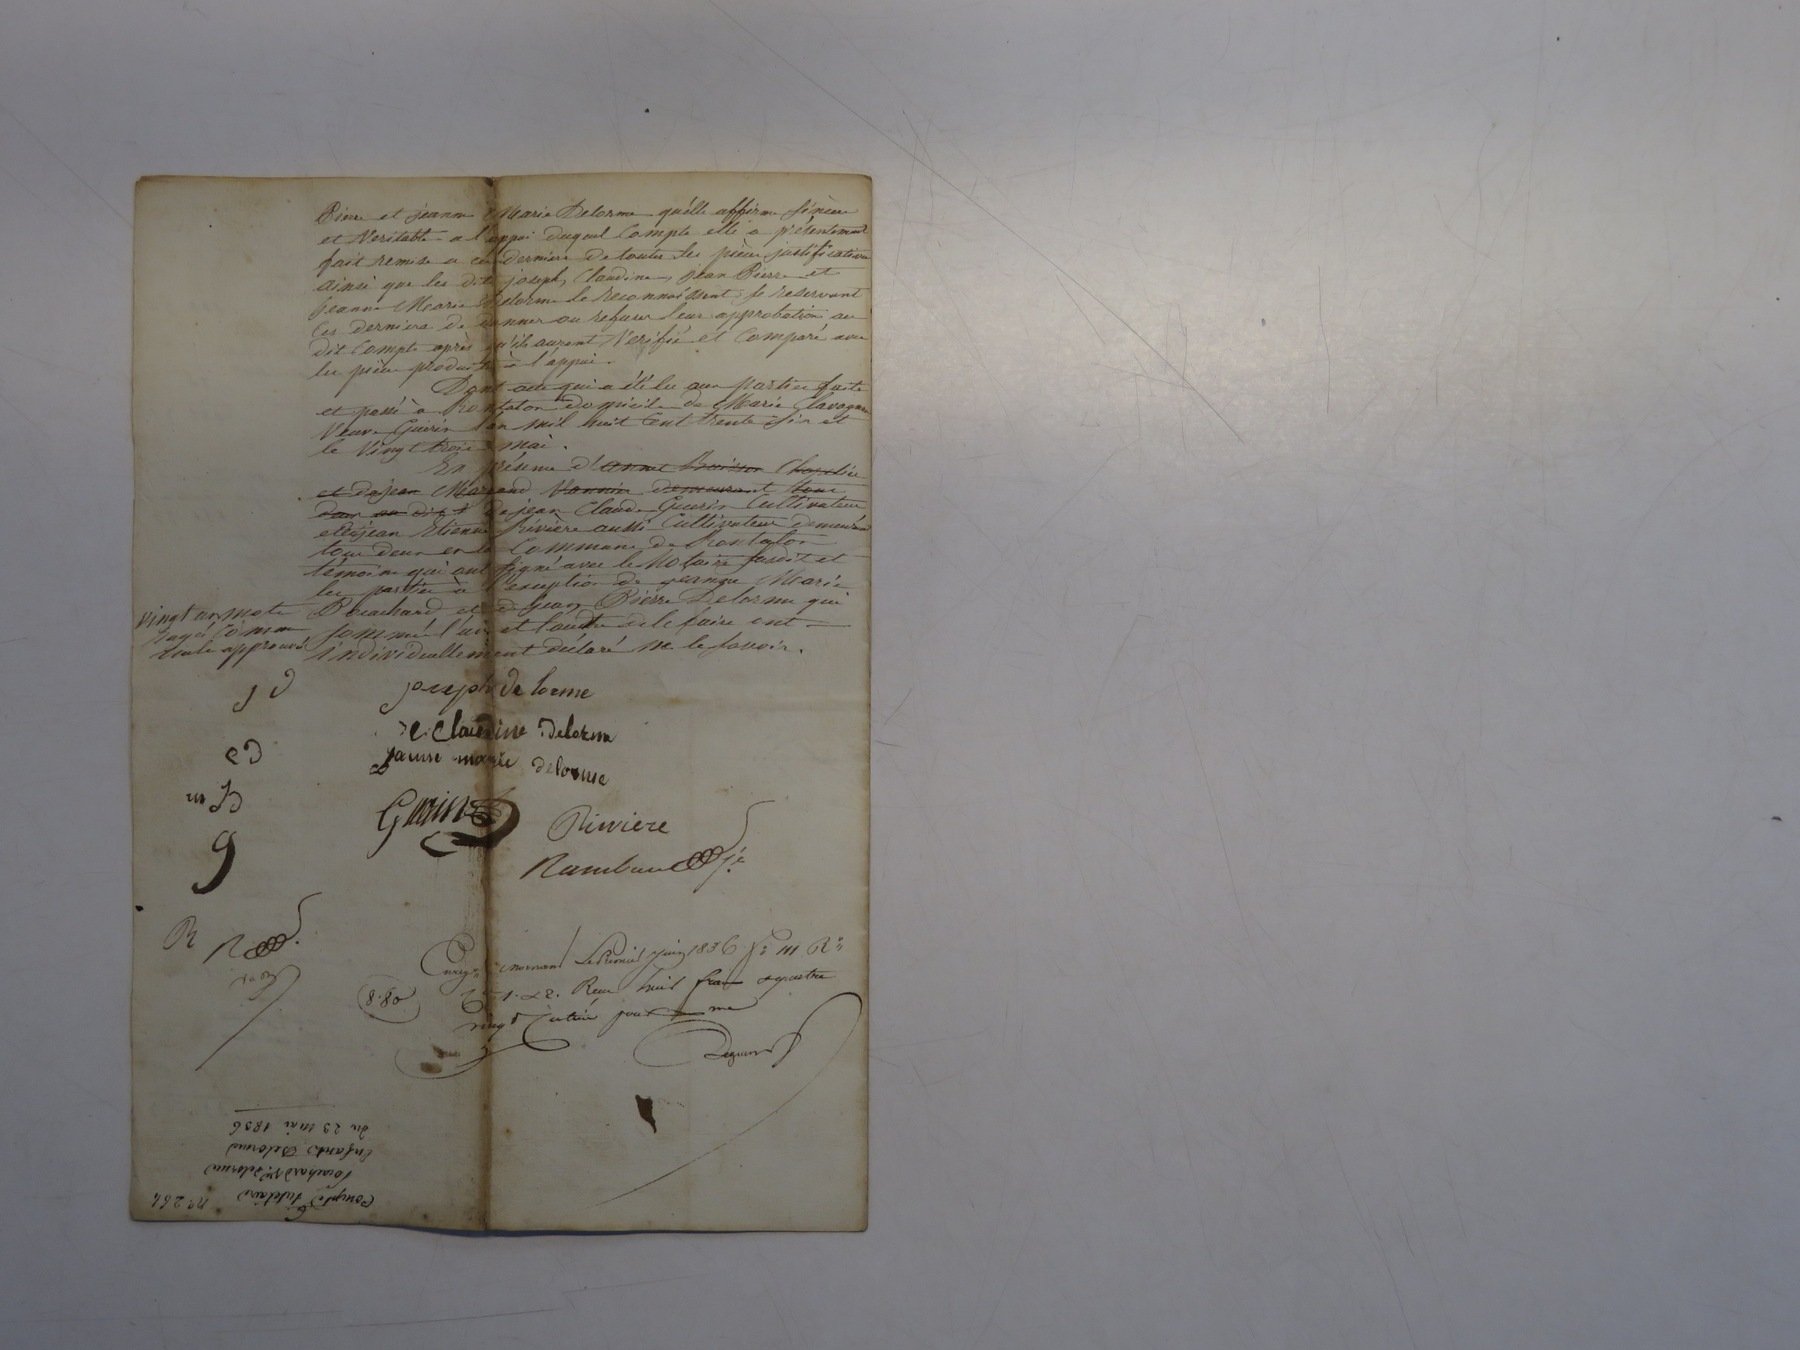 Pierre et jeanne Marie Delorme qu'elle affirme sincère
et Veritable a l'appui duquel Compte elle a présentement
fait remise a ces derniers de toutes les pièces justificatives
ainsi que les dits joseph, Claudine, jean Pierre et
jeanne Marie Delorme le reconnaissent, se reservant
Ces derniers de donner ou refuser leur approbation au
dit Compte après qu'ils auront Vérifié et Comparé avec
les pièces produites à l'appui.
Dont acte qui a été lu aux parties fait
et passé à Rontalon domicile de Marie Clavagne
Veuve Guerin l'an mil huit Cent trente six et
le Vingt trois mai.
En présence d'
et de jean Marand Vannier demeurant tous
deux au dit de jean Claude Guerin Cultivateur
et de jean Etienne Rivière aussi Cultivateur demeurant
tous deux en la Commune de Rontalon
témoins qui ont signé avec le Notaire susdit et
les parties à l'exception de jeanne Marie
Bouchard et de jean Pierre Delorme qui
sommé l'un et l'autre de le faire ont
individuellement déclaré ne le savoir.
Vingt un mots
rayés Comme
nuls approuvé
j d
joseph de lorme
c D
Claudine Delorme
m D
jeanne marie delorme
g
Guerin
R
Riviere
R
Rambaud
Enreg. à mornant Le Premier juin 1836 fo 111 Ro
Ces 1 et 2. Reçu huit francs quatre
vingt Centimes pour
8.80
no 264
Compte tutélaire
Bouchard Ve Delorme
Enfants Delorme
du 23 mai 1836